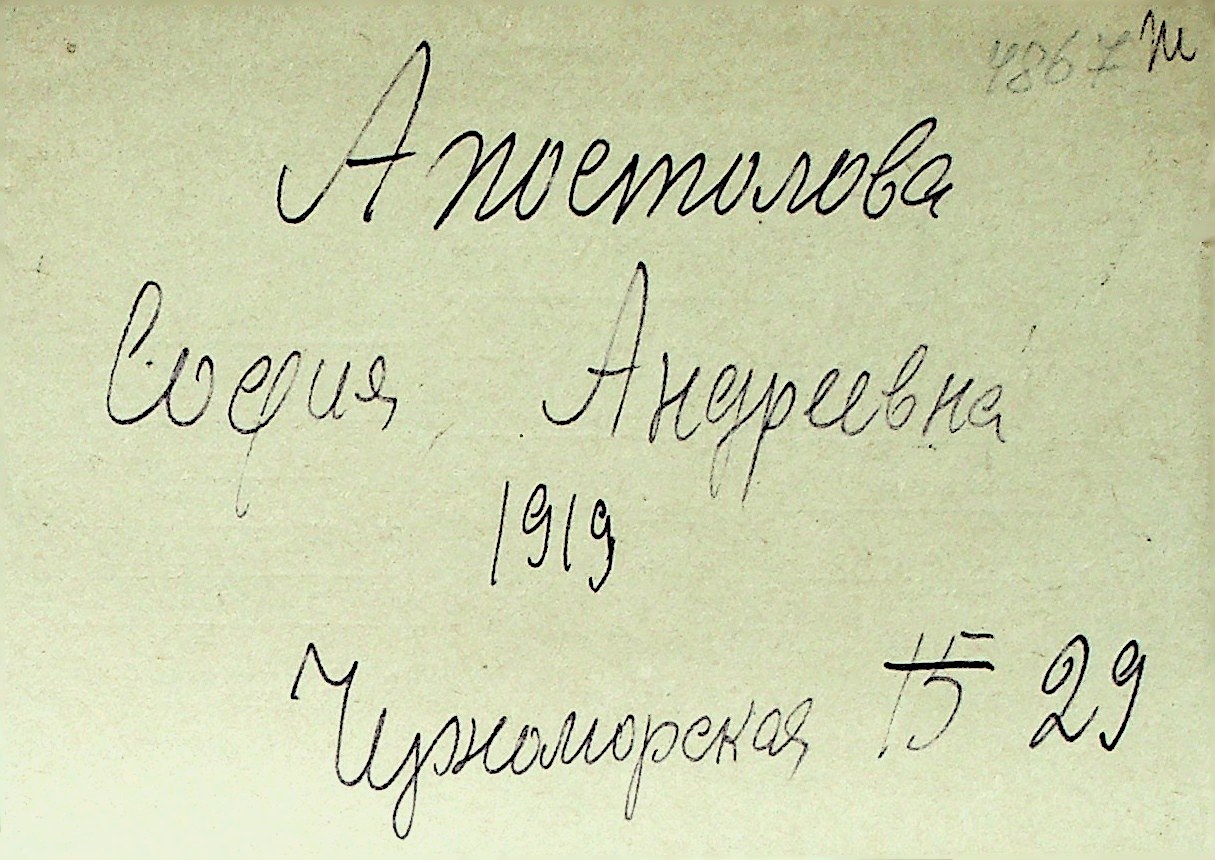 4867 м
Апостолова
София Андреевна
1919
Черноморская 15 29